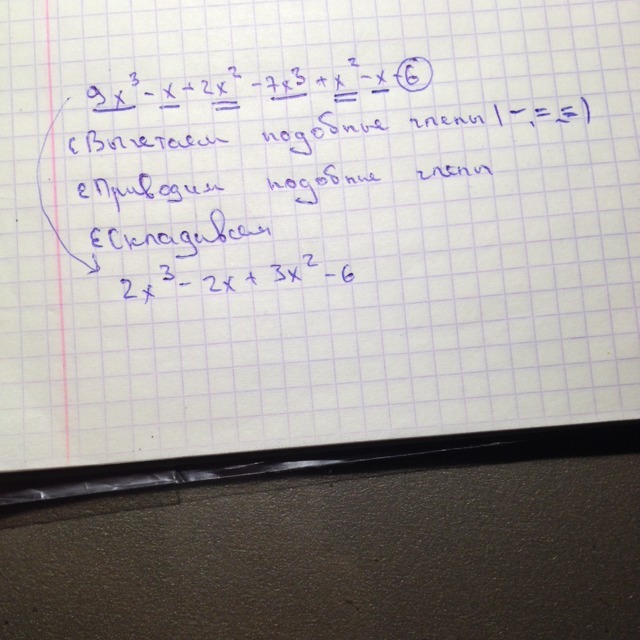 9x³ - x + 2x² - 7x³ + x² - x - 6
Вычетаем подобные члены (-, =, ≡)
Приводим подобные члены
Складывем
2x³ - 2x + 3x² - 6